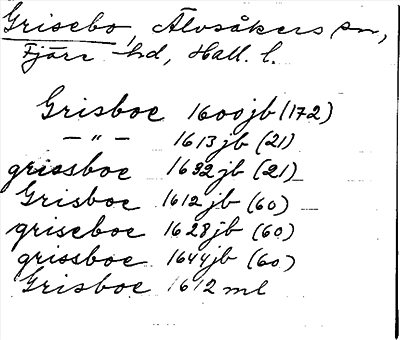 Grisebo, Älvsåkers sn,
Fjäre hd, Hall. l.
Grisboe 1600 jb (172)
— " — 1613 jb (21)
grissboe 1632 jb (21)
Grisboe 1612 jb (60)
griseboe 1628 jb (60)
grissboe 1644 jb (60)
Grisboe 1612 ml